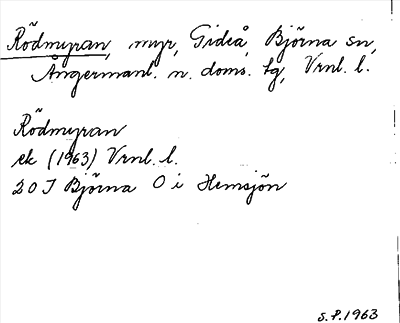 Rödmyran, myr, Gideå, Björna sn,
Ångermanl. n. doms. tg, Vrnl. l.
Rödmyran
ek (1963) Vrnl. l.
20 J Björna O i Hemsjön
S.P. 1963